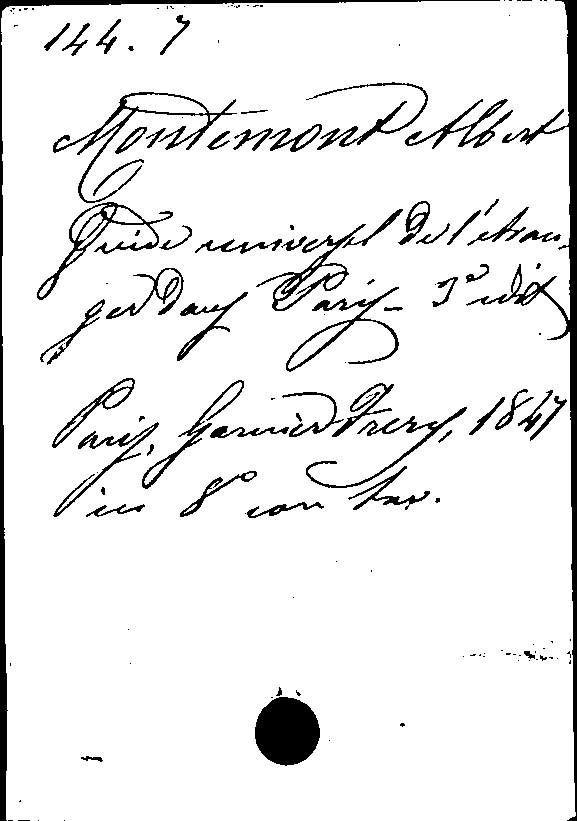 144. 7
Montemont Albert
Guide universel de l'étran-
ger dans Paris - 3a edit
Paris, Garnier Frers, 1847
in 8° con tav.